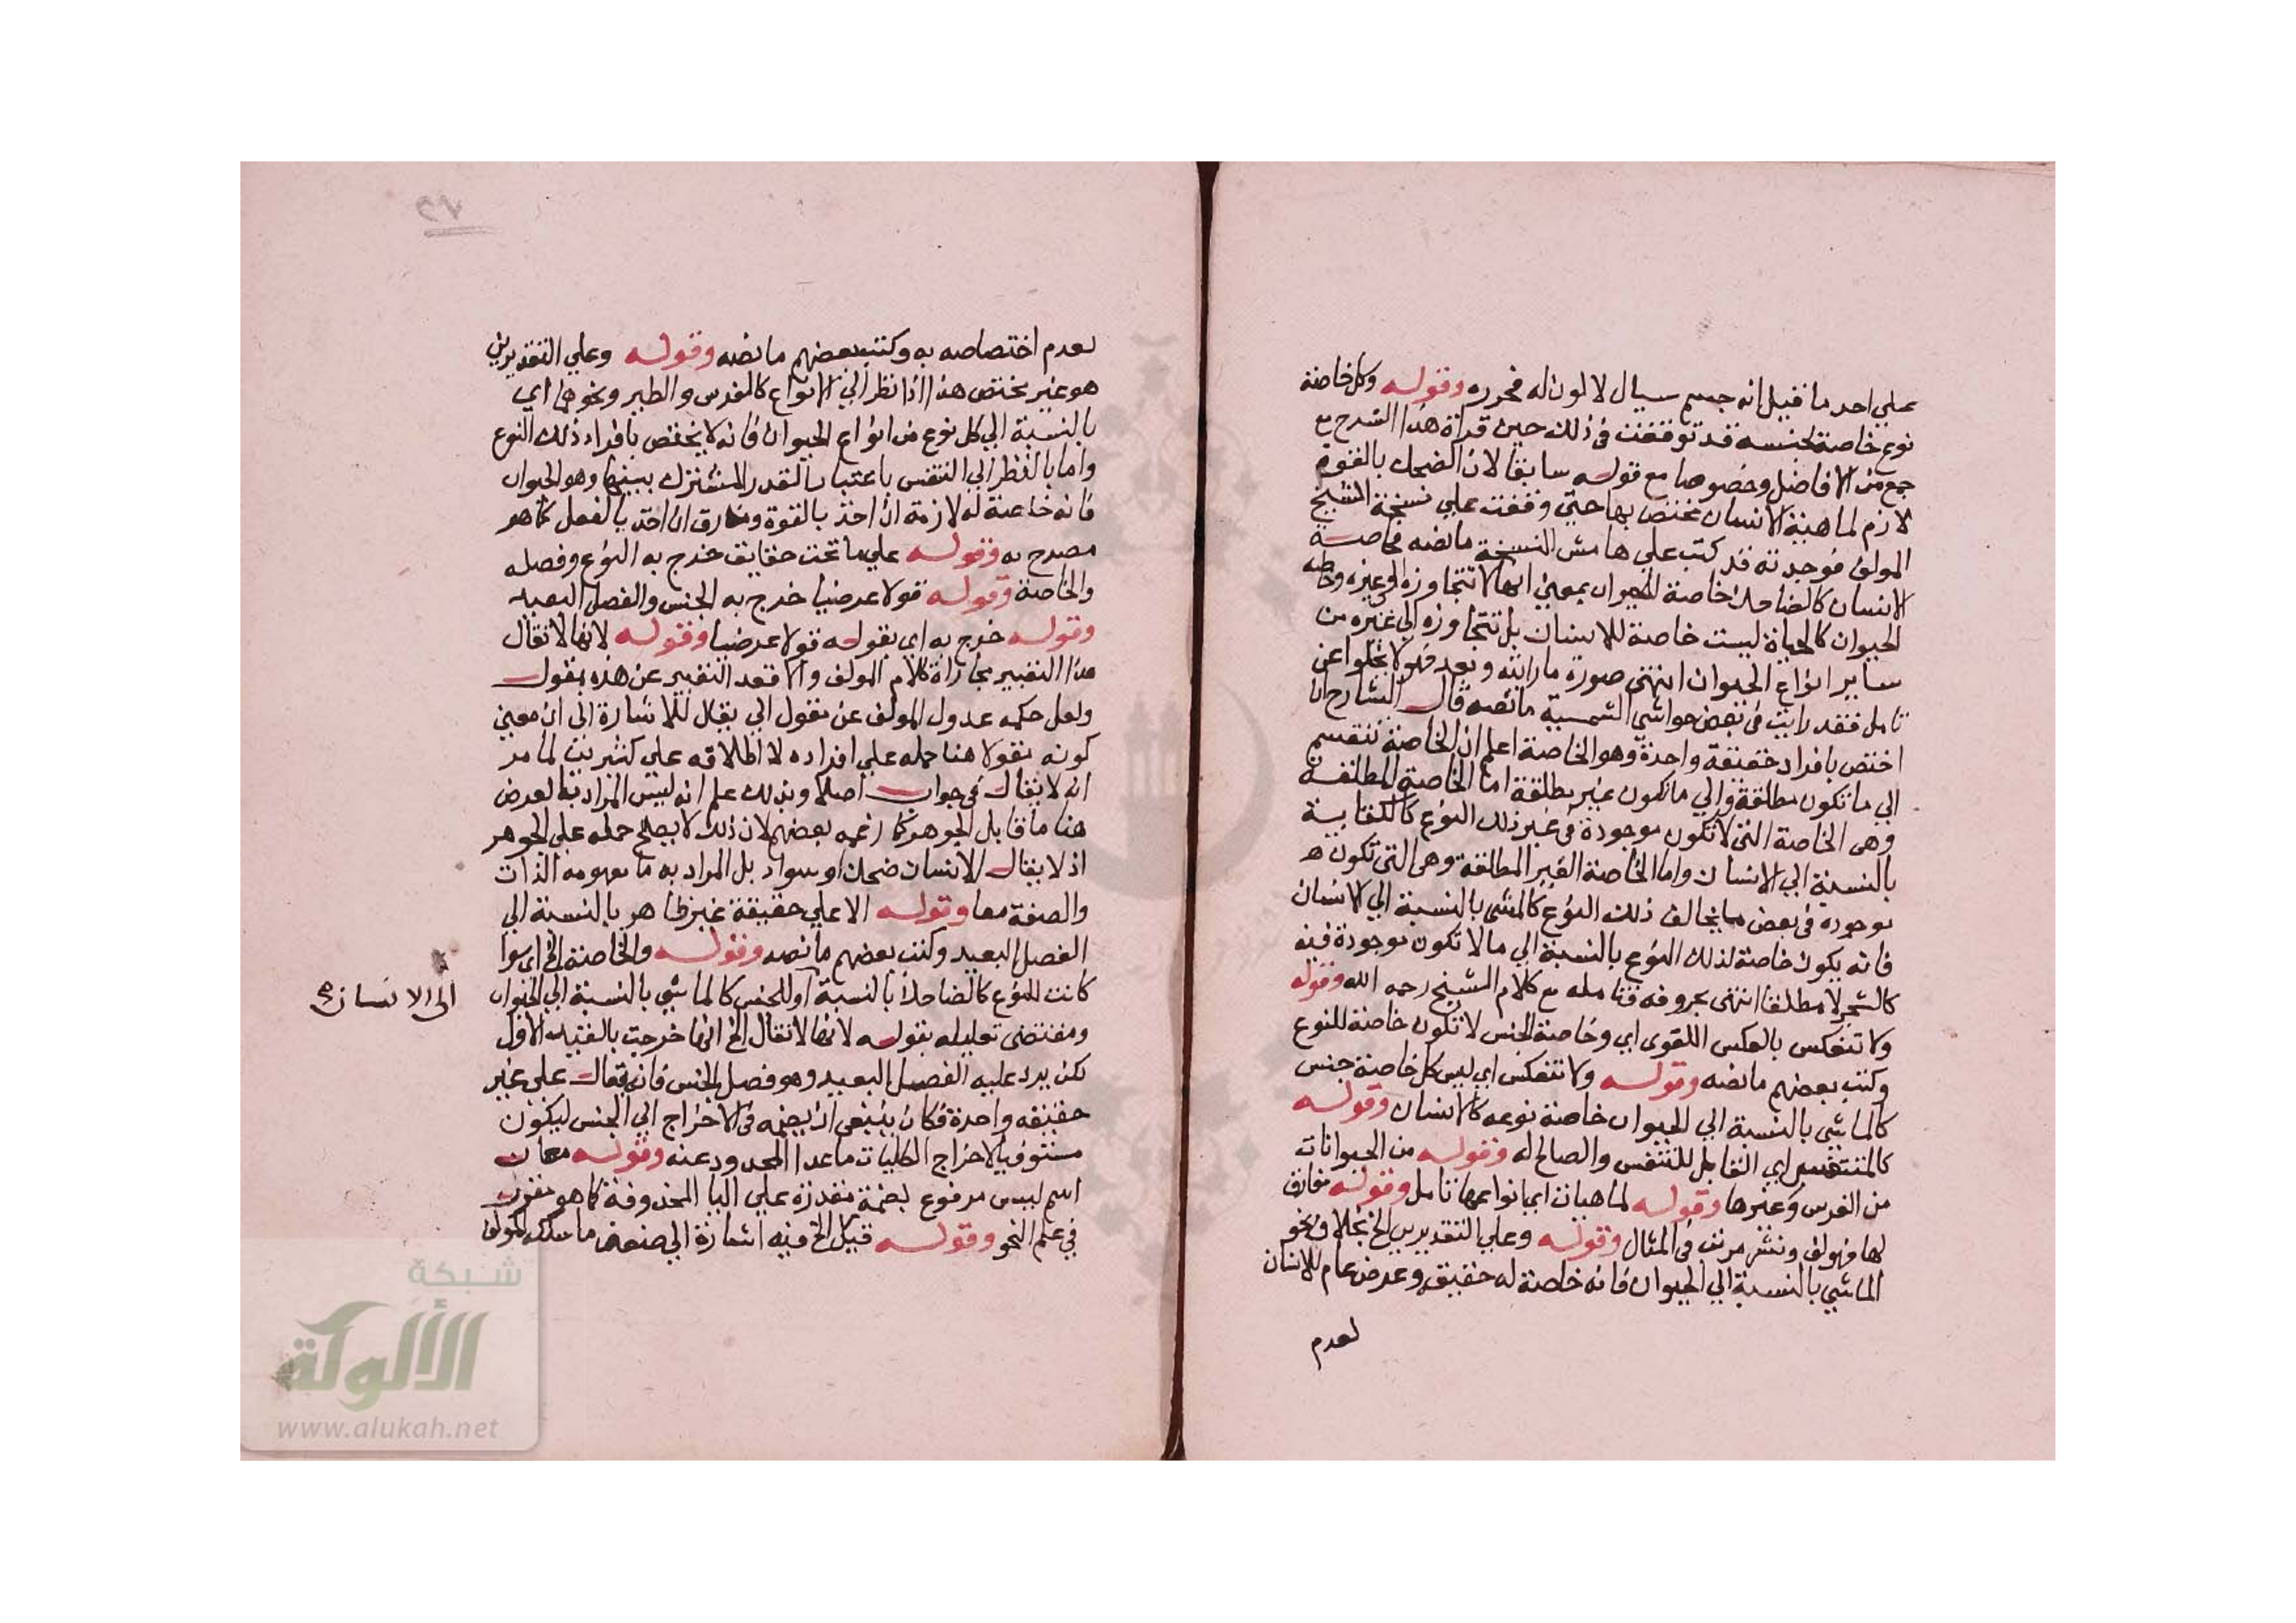 علي احد ما قيل انه جسم سيال لا لون له فحرره وقوله وكل خاصة
نوع خاصة لجنسه قد توقفت في ذلك حين قراة هذا الشرح مع
جمع من الافاضل وخصوصا مع قوله سابقا لان الضحك بالقوة
لازم لماهية الانسان مختص بها حتي وقفت علي نسخة الشيخ
المولف فوجدته قد كتب علي هامش النسخة ما نصه خاصة
الانسان كالضاحك خاصة للحيوان بمعني انها لا تتجاوزه الي غيره وخاصة
الحيوان كالحياة ليست خاصة للانسان بل تتجاوزه الي غيره من
ساير انواع الحيوان انتهي صورة ما رايته وبعد فهو لا يخلوا عن
تامل فقد رايت في بعض حواشي الشمسية ما نصه قال الشارح ان
اختص بافراد حقيقة واحدة وهو الخاصة اعلم ان الخاصة تنقسم
الي ما تكون مطلقة والي ما تكون غير مطلقة اما الخاصة المطلقة
وهي الخاصة التي لا تكون موجودة في غير ذلك النوع كالكتابة
بالنسبة الي الانسان واما الخاصة الغير المطلقة وهي التي تكون
موجودة في بعض ما يخالف ذلك النوع كالمشي بالنسبة الي الانسان
فانه يكون خاصة لذلك النوع بالنسبة الي ما لا تكون موجودة فيه
كالشجر لا مطلقا انتهي بحروفه فتامله مع كلام الشيخ رحمه الله وقوله
ولا تنعكس بالعكس اللغوي اي وخاصة الجنس لا تكون خاصة للنوع
وكتب بعضهم ما نصه وقوله ولا تنعكس اي ليس كل خاصة جنس
كالماشي بالنسبة الي الحيوان خاصة نوعه كالانسان وقوله
كالمتنفس اي القابل للتنفس والصالح له وقوله من الحيوانات
من الفرس وغيرها وقوله لماهيات اي بانواعها تامل وقوله مفارق
لها فهو لف ونشر مرتب في المثال وقوله وعلي التقديرين الخ بخلاف نحو
الماشي بالنسبة الي الحيوان فانه خاصة له حقيقة وعرض عام للانسان
لعدم
لعدم اختصاصه به وكتب بعضهم ما نصه وقوله وعلي التقديرين
هو غير مختص هذا اذا نظر الي الانواع كالفرس والطير ونحوها اي
بالنسبة الي كل نوع من انواع الحيوان فانه لا يختص بافراد ذلك النوع
واما بالنظر الي التنفس باعتبار القدر المشترك بينها وهو الحيوان
فانه خاصة له لازمة ان اخذ بالقوة ومفارق ان اخذ بالفعل كما هو
مصرح به وقوله علي ما تحت حقايق خرج به النوع وفصله
والخاصة وقوله قولا عرضيا خرج به الجنس والفصل البعيد
وقوله خرج به اي بقوله قولا عرضيا وقوله لانها لا تقال
هذا التعبير مجاراة لكلام المولف والا فقد التعبير عن هذه بقول
ولعل حكمة عدول المولف عن مقول الي يقال للاشارة الي ان معني
كونه مقولا هنا حمله علي افراده لا اطلاقه علي كثيرين لما مر
انه لا يقال في جواب اصلا وبذلك علم انه ليس المراد بالعرض
هنا ما قابل الجوهر كما زعمه بعضهم لان ذلك لا يصلح حمله علي الجوهر
اذ لا يقال الانسان ضحك او سواد بل المراد به ما مفهومه الذات
والصفة معا وقوله الا علي حقيقة غير ظاهر بالنسبة الي
الفصل البعيد وكتب بعضهم ما نصه وقوله والخاصة الخ اي سوا
كانت للنوع كالضاحك بالنسبة او للجنس كالماشي بالنسبة الي الحيوان
الي الانسان صح
ومقتضي تعليله بقوله لانها لا تقال الخ انها خرجت بالقيد الاول
لكن يرد عليه الفصل البعيد وهو فصل الجنس فانه يقال علي غير
حقيقة واحدة فكان ينبغي ان يضمه في الاخراج الي الجنس ليكون
مستوفيا لاخراج الكليات ما عدا المحدود عنه وقوله معان
اسم ليس مرفوع بضمة مقدرة علي اليا المحذوفة كما هو مقرر
في علم النحو وقوله قيل الخ فيه اشارة الي ضعف ما سلكه المولف
شبكة
الألوكة
www.alukah.net